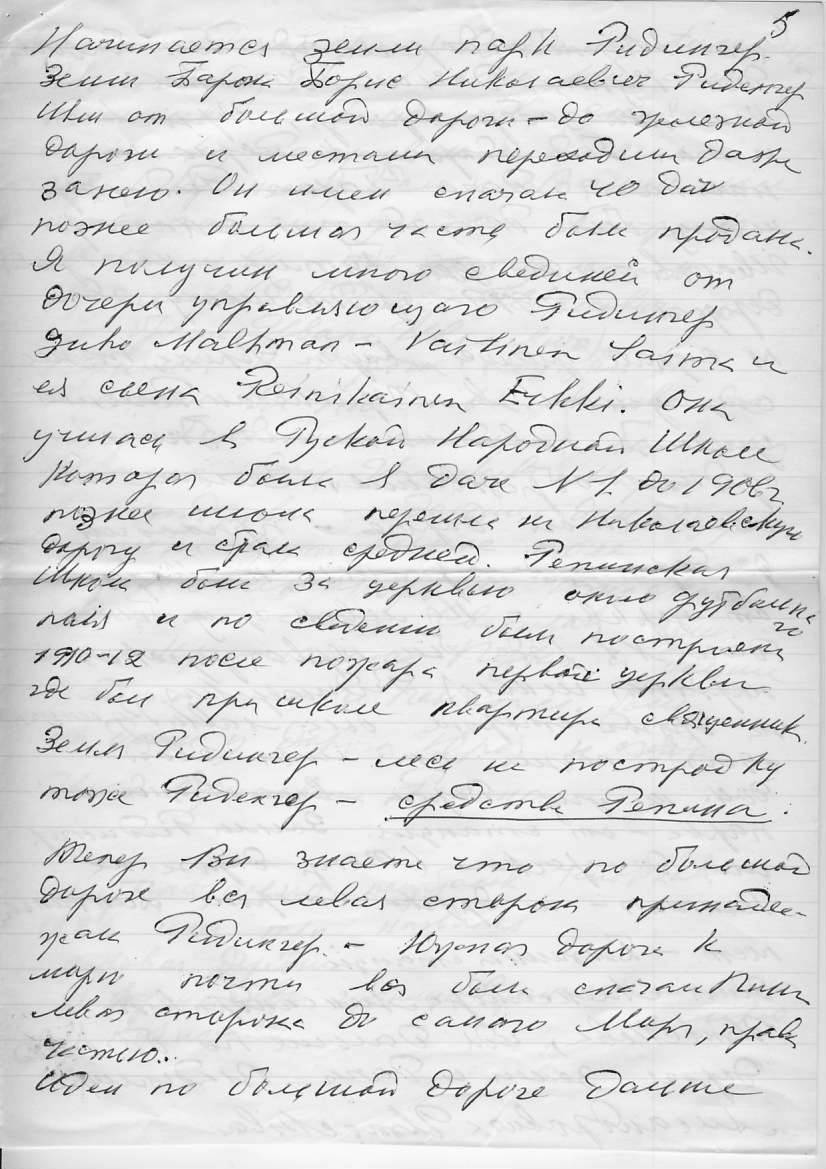 5
Начинается земли парк Ридингер.
Земли Барона Борис Николаевич Ридингер
Шли от большой дороги – до железной
дороги и местами переходили даже
за нею. Он имел сначала 40 дач
позже большая часть были продана.
Я получил много сведиией от
дочери управляющаго Ридингер
Juho Malkman – Vartinen Saima и
ея сына Reinikainen Erkki. Она
училась в Руской Народной Школе
Которая была в даче N 1. до 1906 г
позже школа перешла на Николаевскую
дорогу и стала средней. Репинская
Школа была за церквью около футбольна
го поля и по сведению были построена
1910-12 после пожара первой церкви
где был при школе квартира священник.
Земля Ридингер – леса на постродку
тоже Ридингер – средства Репина.
Тепер Вы знаете что по большой
дороге вся левая сторона принадле-
жала Ридингер. – Южная дорога к
морю почти вся была сначала
левая сторона до самого Моря, права
частью..
Идем по большой дороге дальше